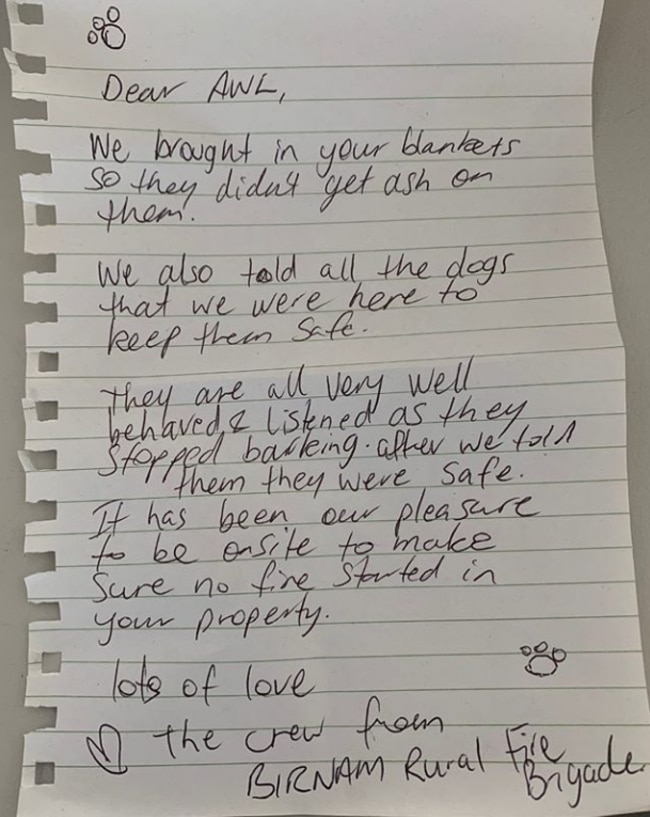 Dear AWL,
We brought in your blankets
so they didn't get ash on
them.
We also told all the dogs
that we were here to
keep them safe.
They are all very well
behaved & listened as they
stopped barking. after we told
them they were safe.
It has been our pleasure
to be onsite to make
sure no fire started in
your property.
lots of love
the crew from
BIRNAM Rural Fire
Brigade.